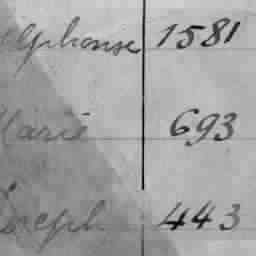 Alphonse 1581
Marie 693
Joseph 443